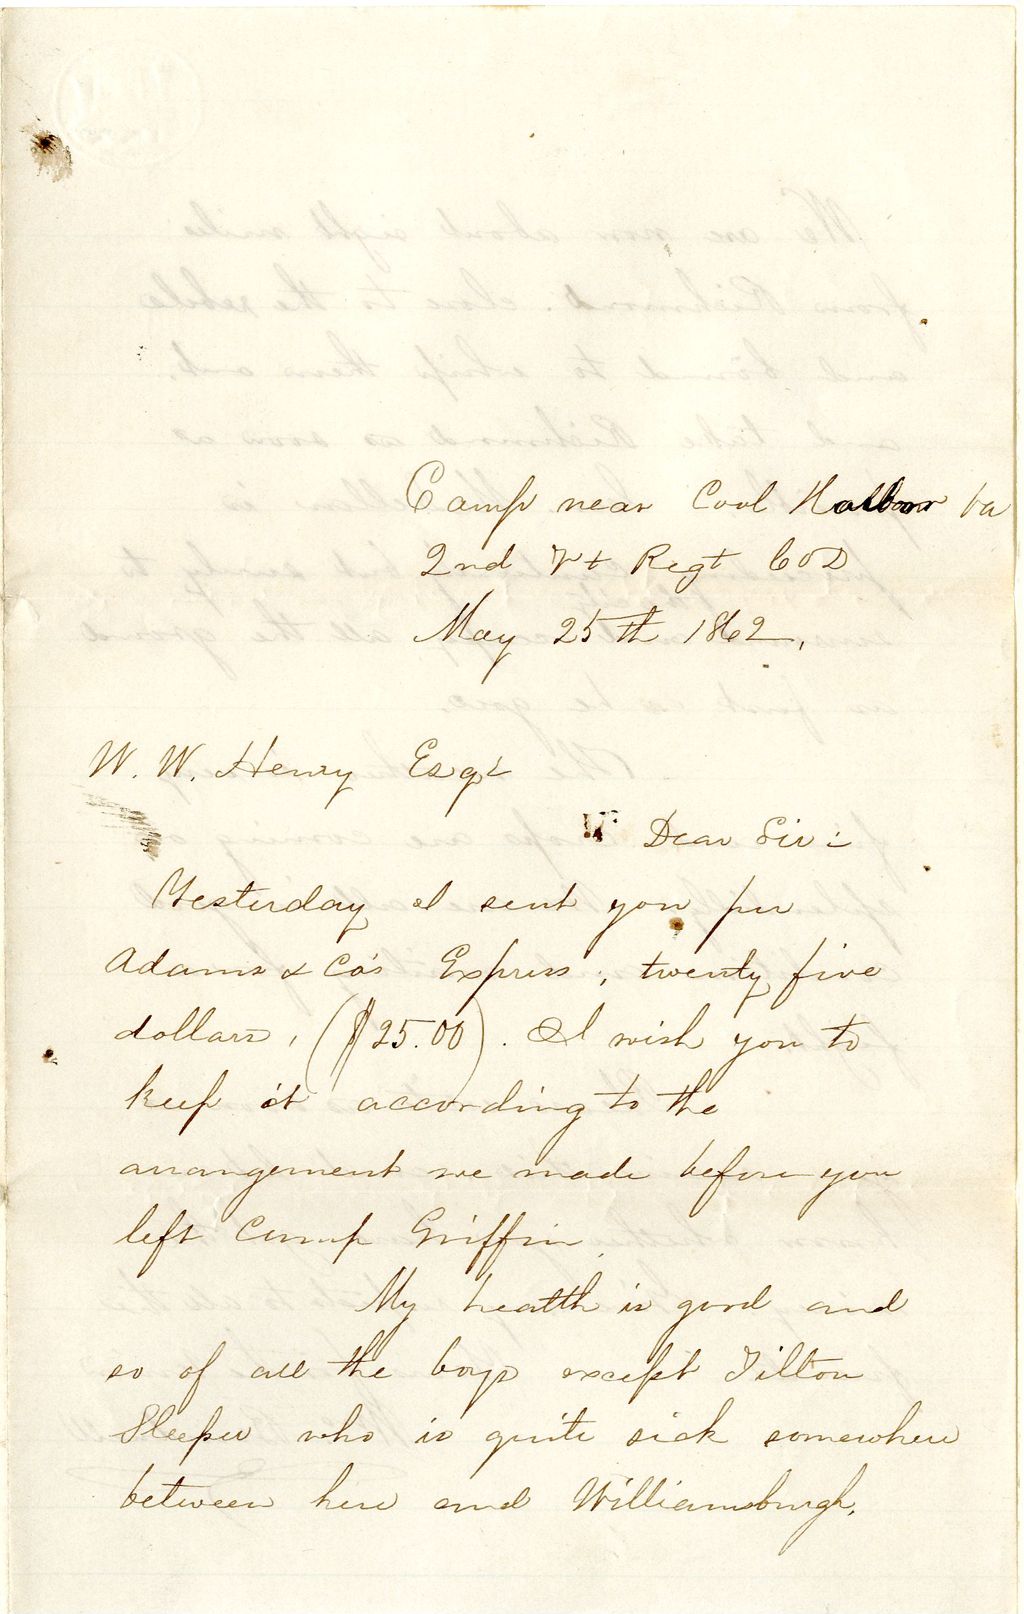 Camp near Cool Harbor Va
2nd Vt Regt Co D
May 25th 1862,
W. W. Henry Esqr
Dear Sir:
Yesterday I sent you per
Adams & Co's Express, twenty five
dollars, ($25.00). I wish you to
keep it according to the
arrangement we made before you
left Camp Griffin.
My health is good and
so of all the boys except Tilton
Sleeper who is quite sick somewhere
between here and Williamsburgh.